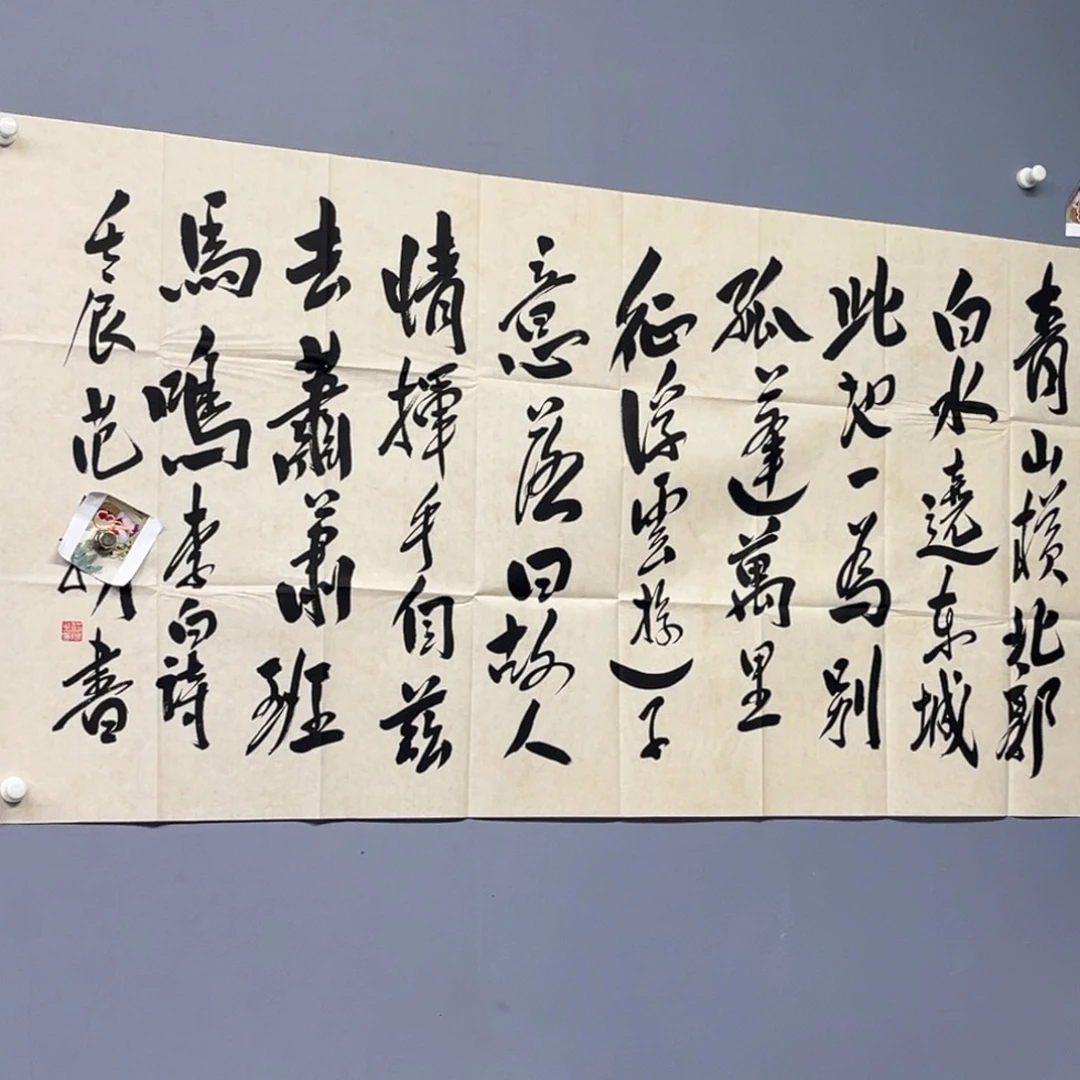 青山横北郭
白水遶东城
此地一为别
孤蓬萬里
征浮雲遊子
意落日故人
情揮手自茲
去蕭蕭班
馬鳴李白诗
壬辰范書